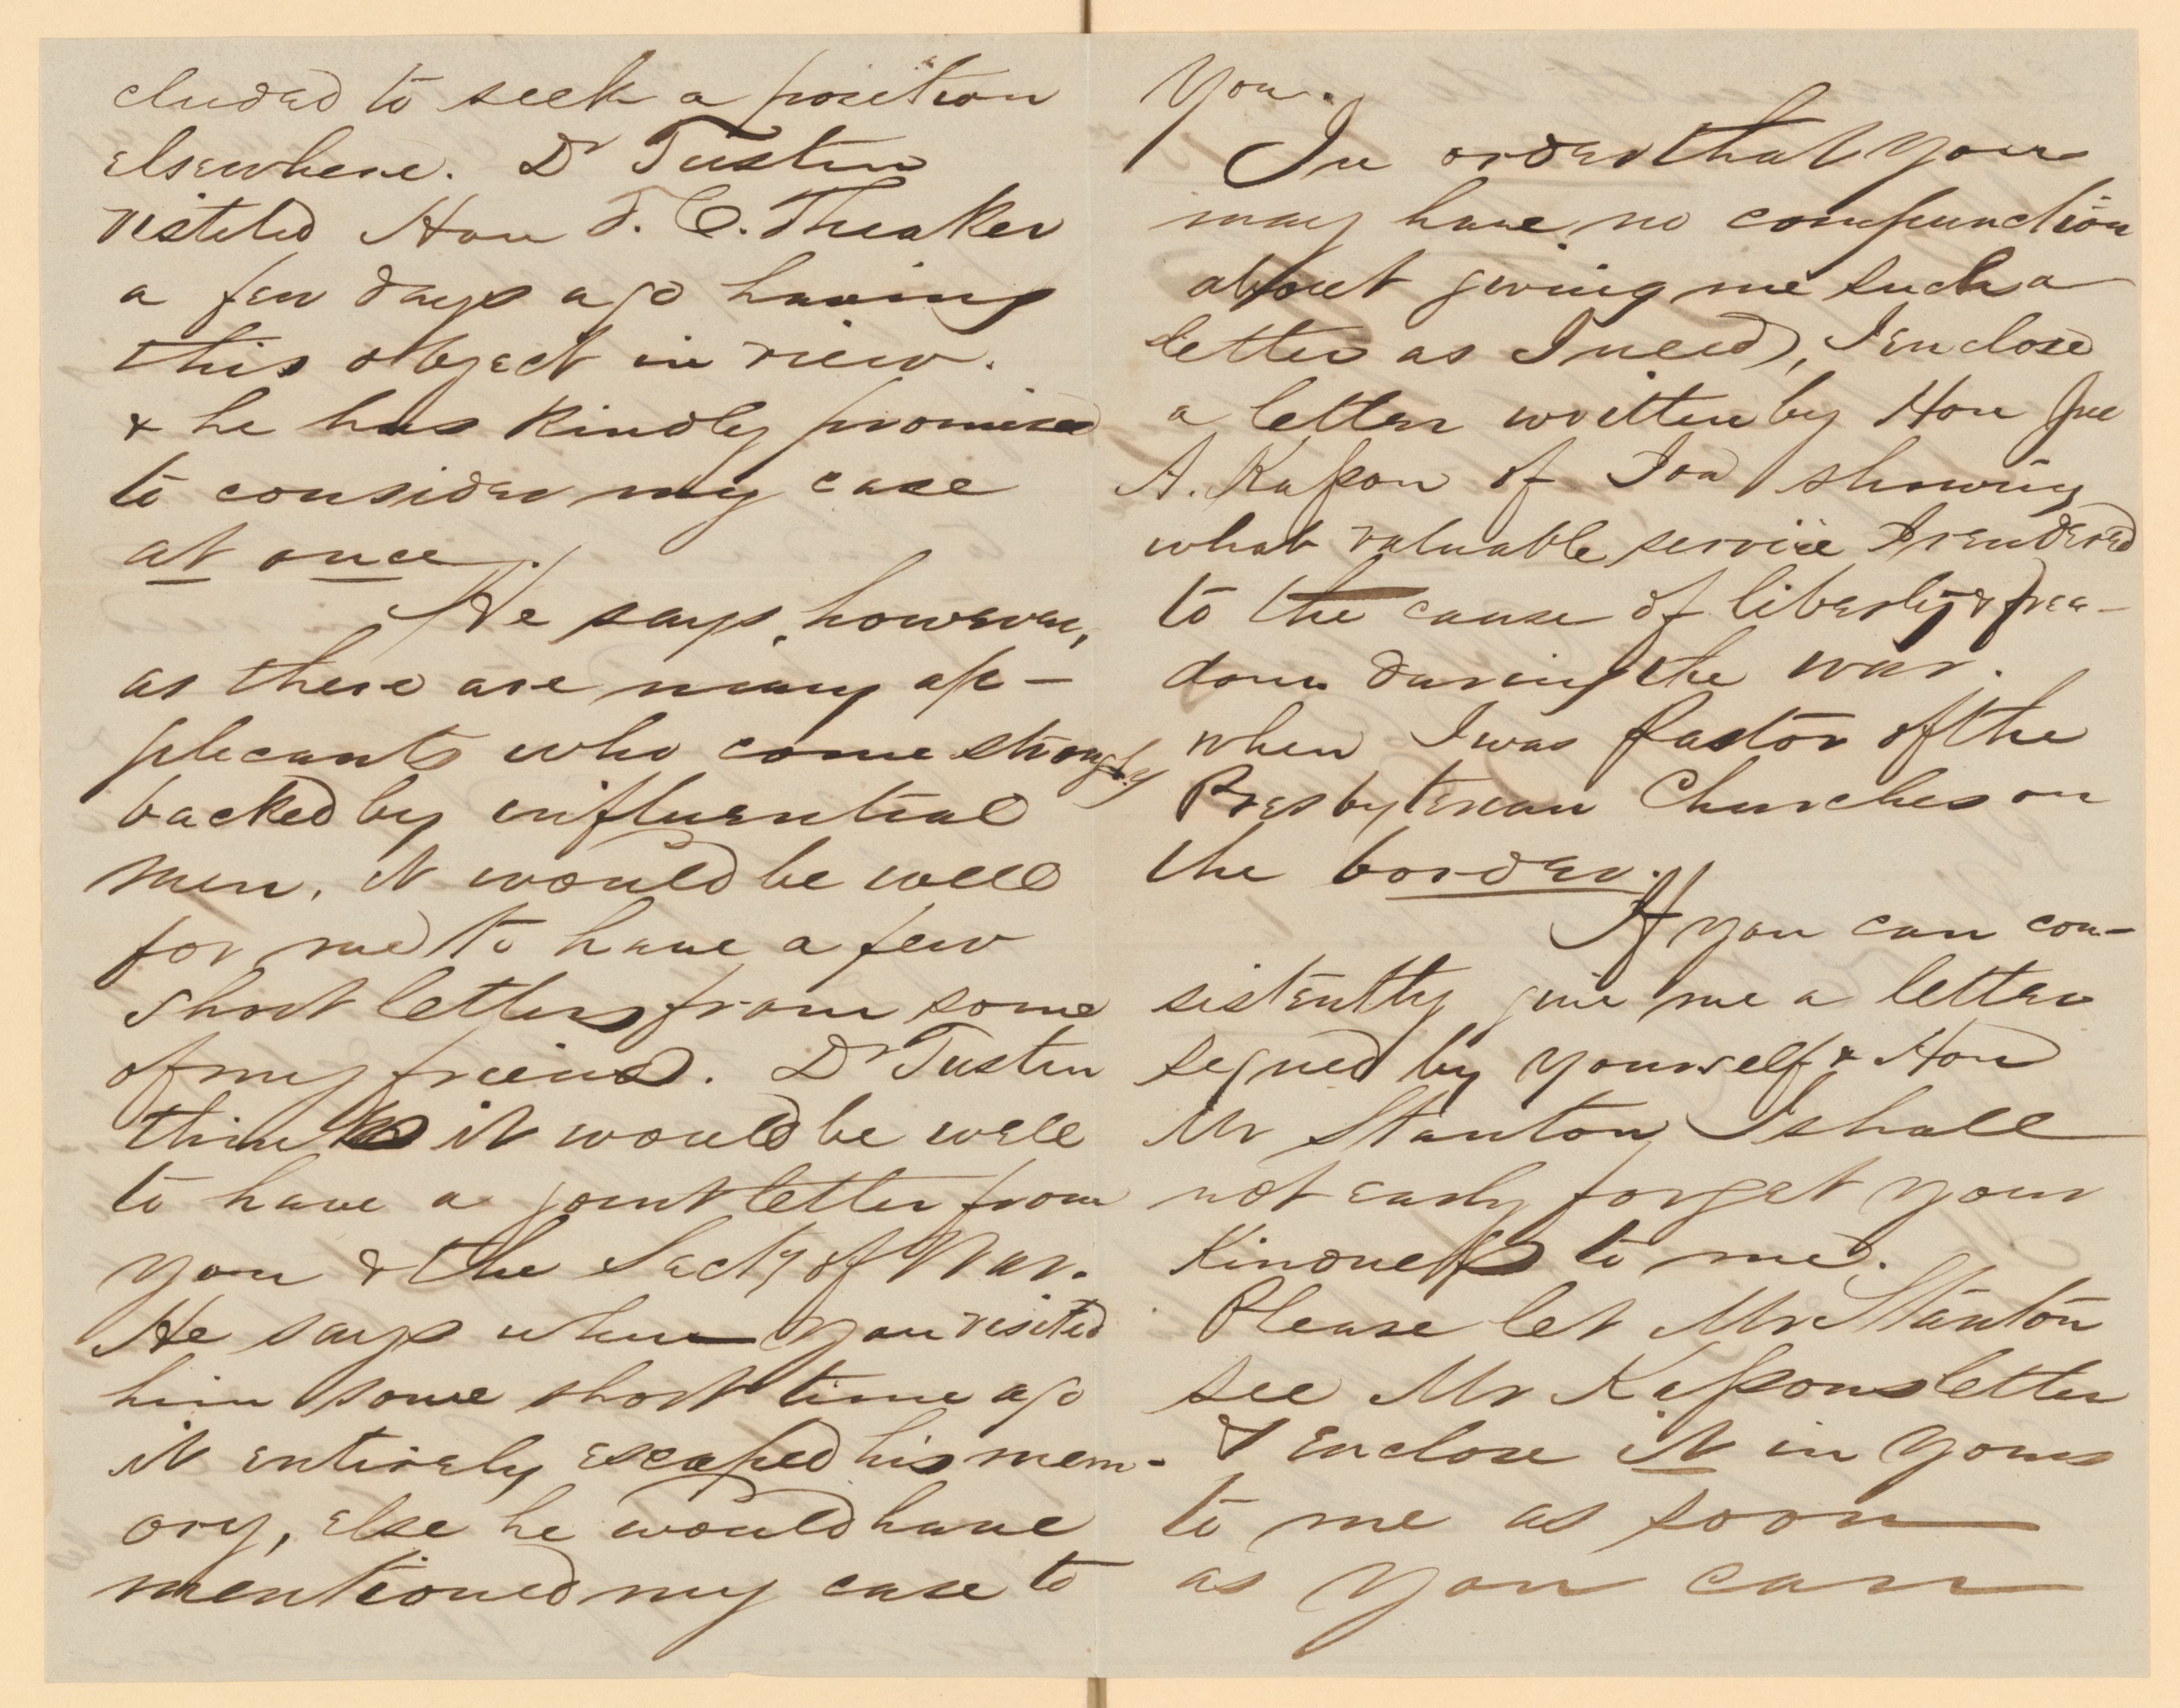 cluded to seek a position
elsewhere. Dr Tustin
visited Hon T. C. Theaker
a few days ago having
this object in view.
& he has kindly promised
to consider my case
at once.
He says, however,
as there are many ap-
plicants who come strongly
backed by influential
men, it would be well
for me to have a few
short letters from some
of my friends. Dr Tustin
thinks it would be well
to have a joint letter from
you & the Secty of War.
He says when you visited
him some short time ago
it entirely escaped his mem-
ory, else he would have
mentioned my case to
you.
In order that you
may have no compunction
about giving me such a
letter as I need, I enclose
a letter written by Hon Jno
A. Kasson of Ioa showing
what valuable service I rendered
to the cause of liberty & free-
dom during the war.
when I was Pastor of the
Presbyterian Churches on
the border.
If you can con-
sistently give me a letter
signed by yourself & Hon
Mr Stanton, I shall
not early forget your
kindness to me.
Please let Mr Stanton
see Mr Kassons letter
& enclose it in yours
to me as soon
as you can